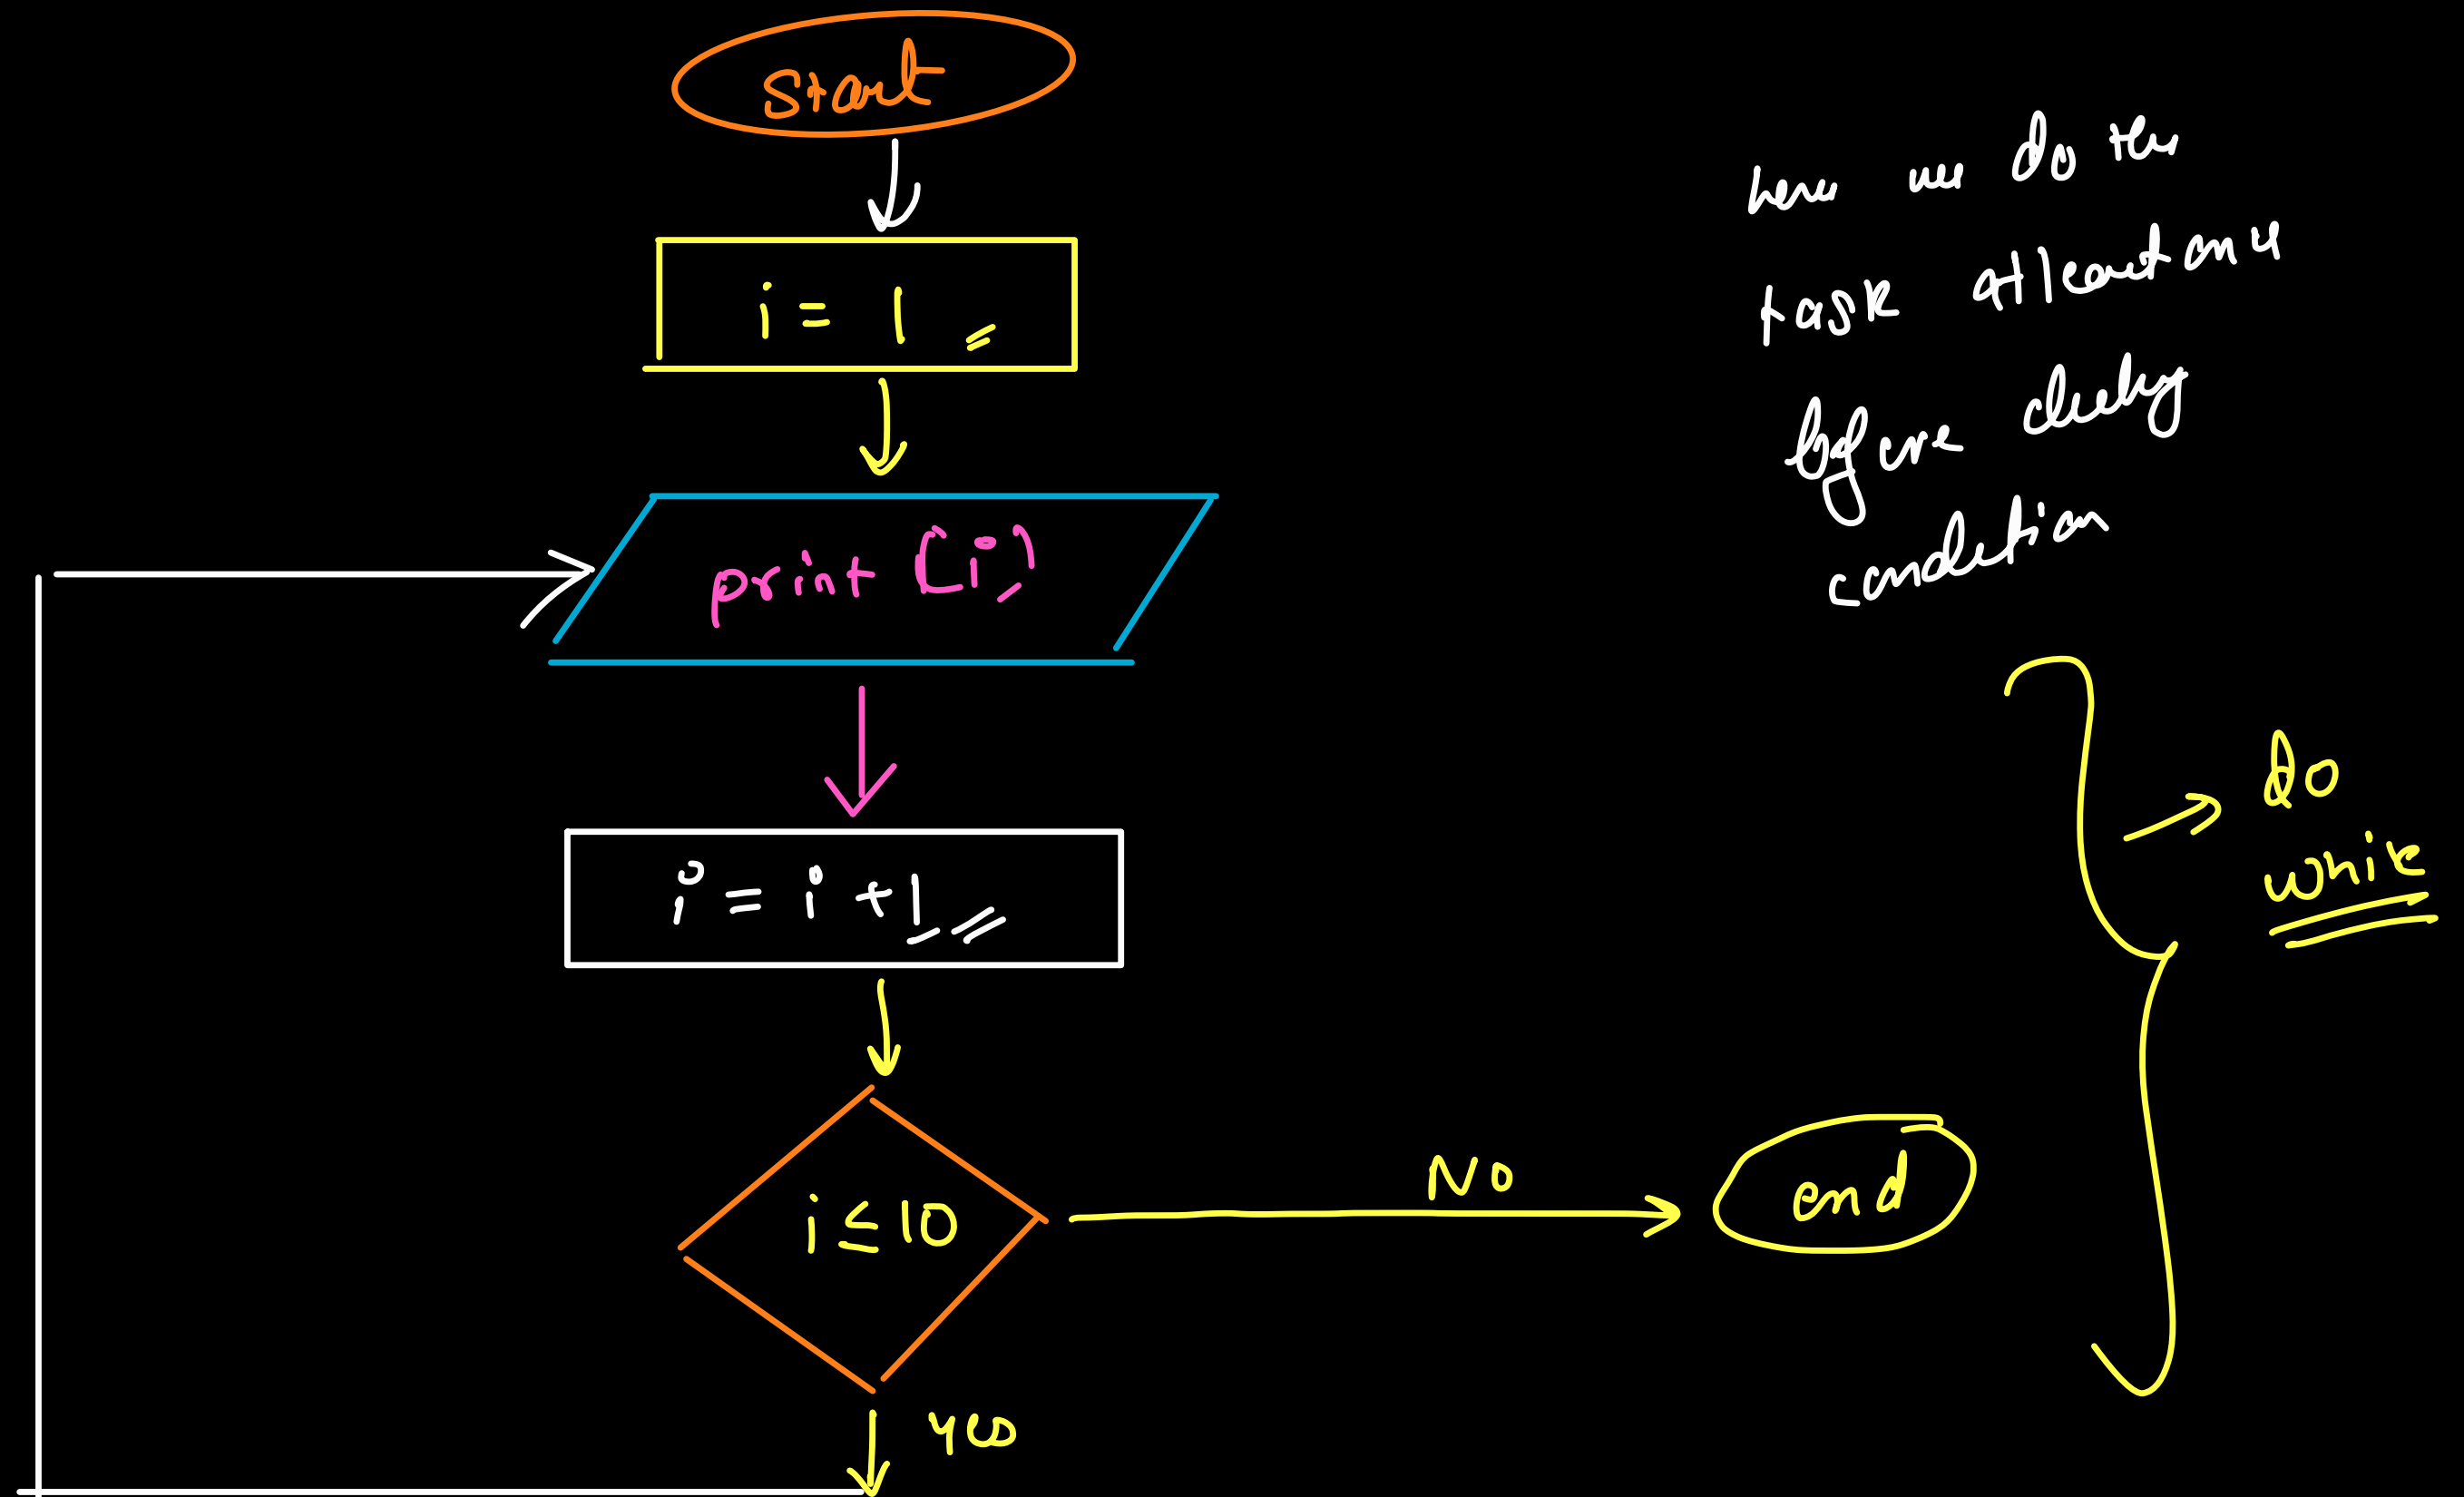 start
i = 1
print (i)
i = i + 1
i ≤ 10
yes
No
end
here we do the
task atleast once
before checking
condition
do
while